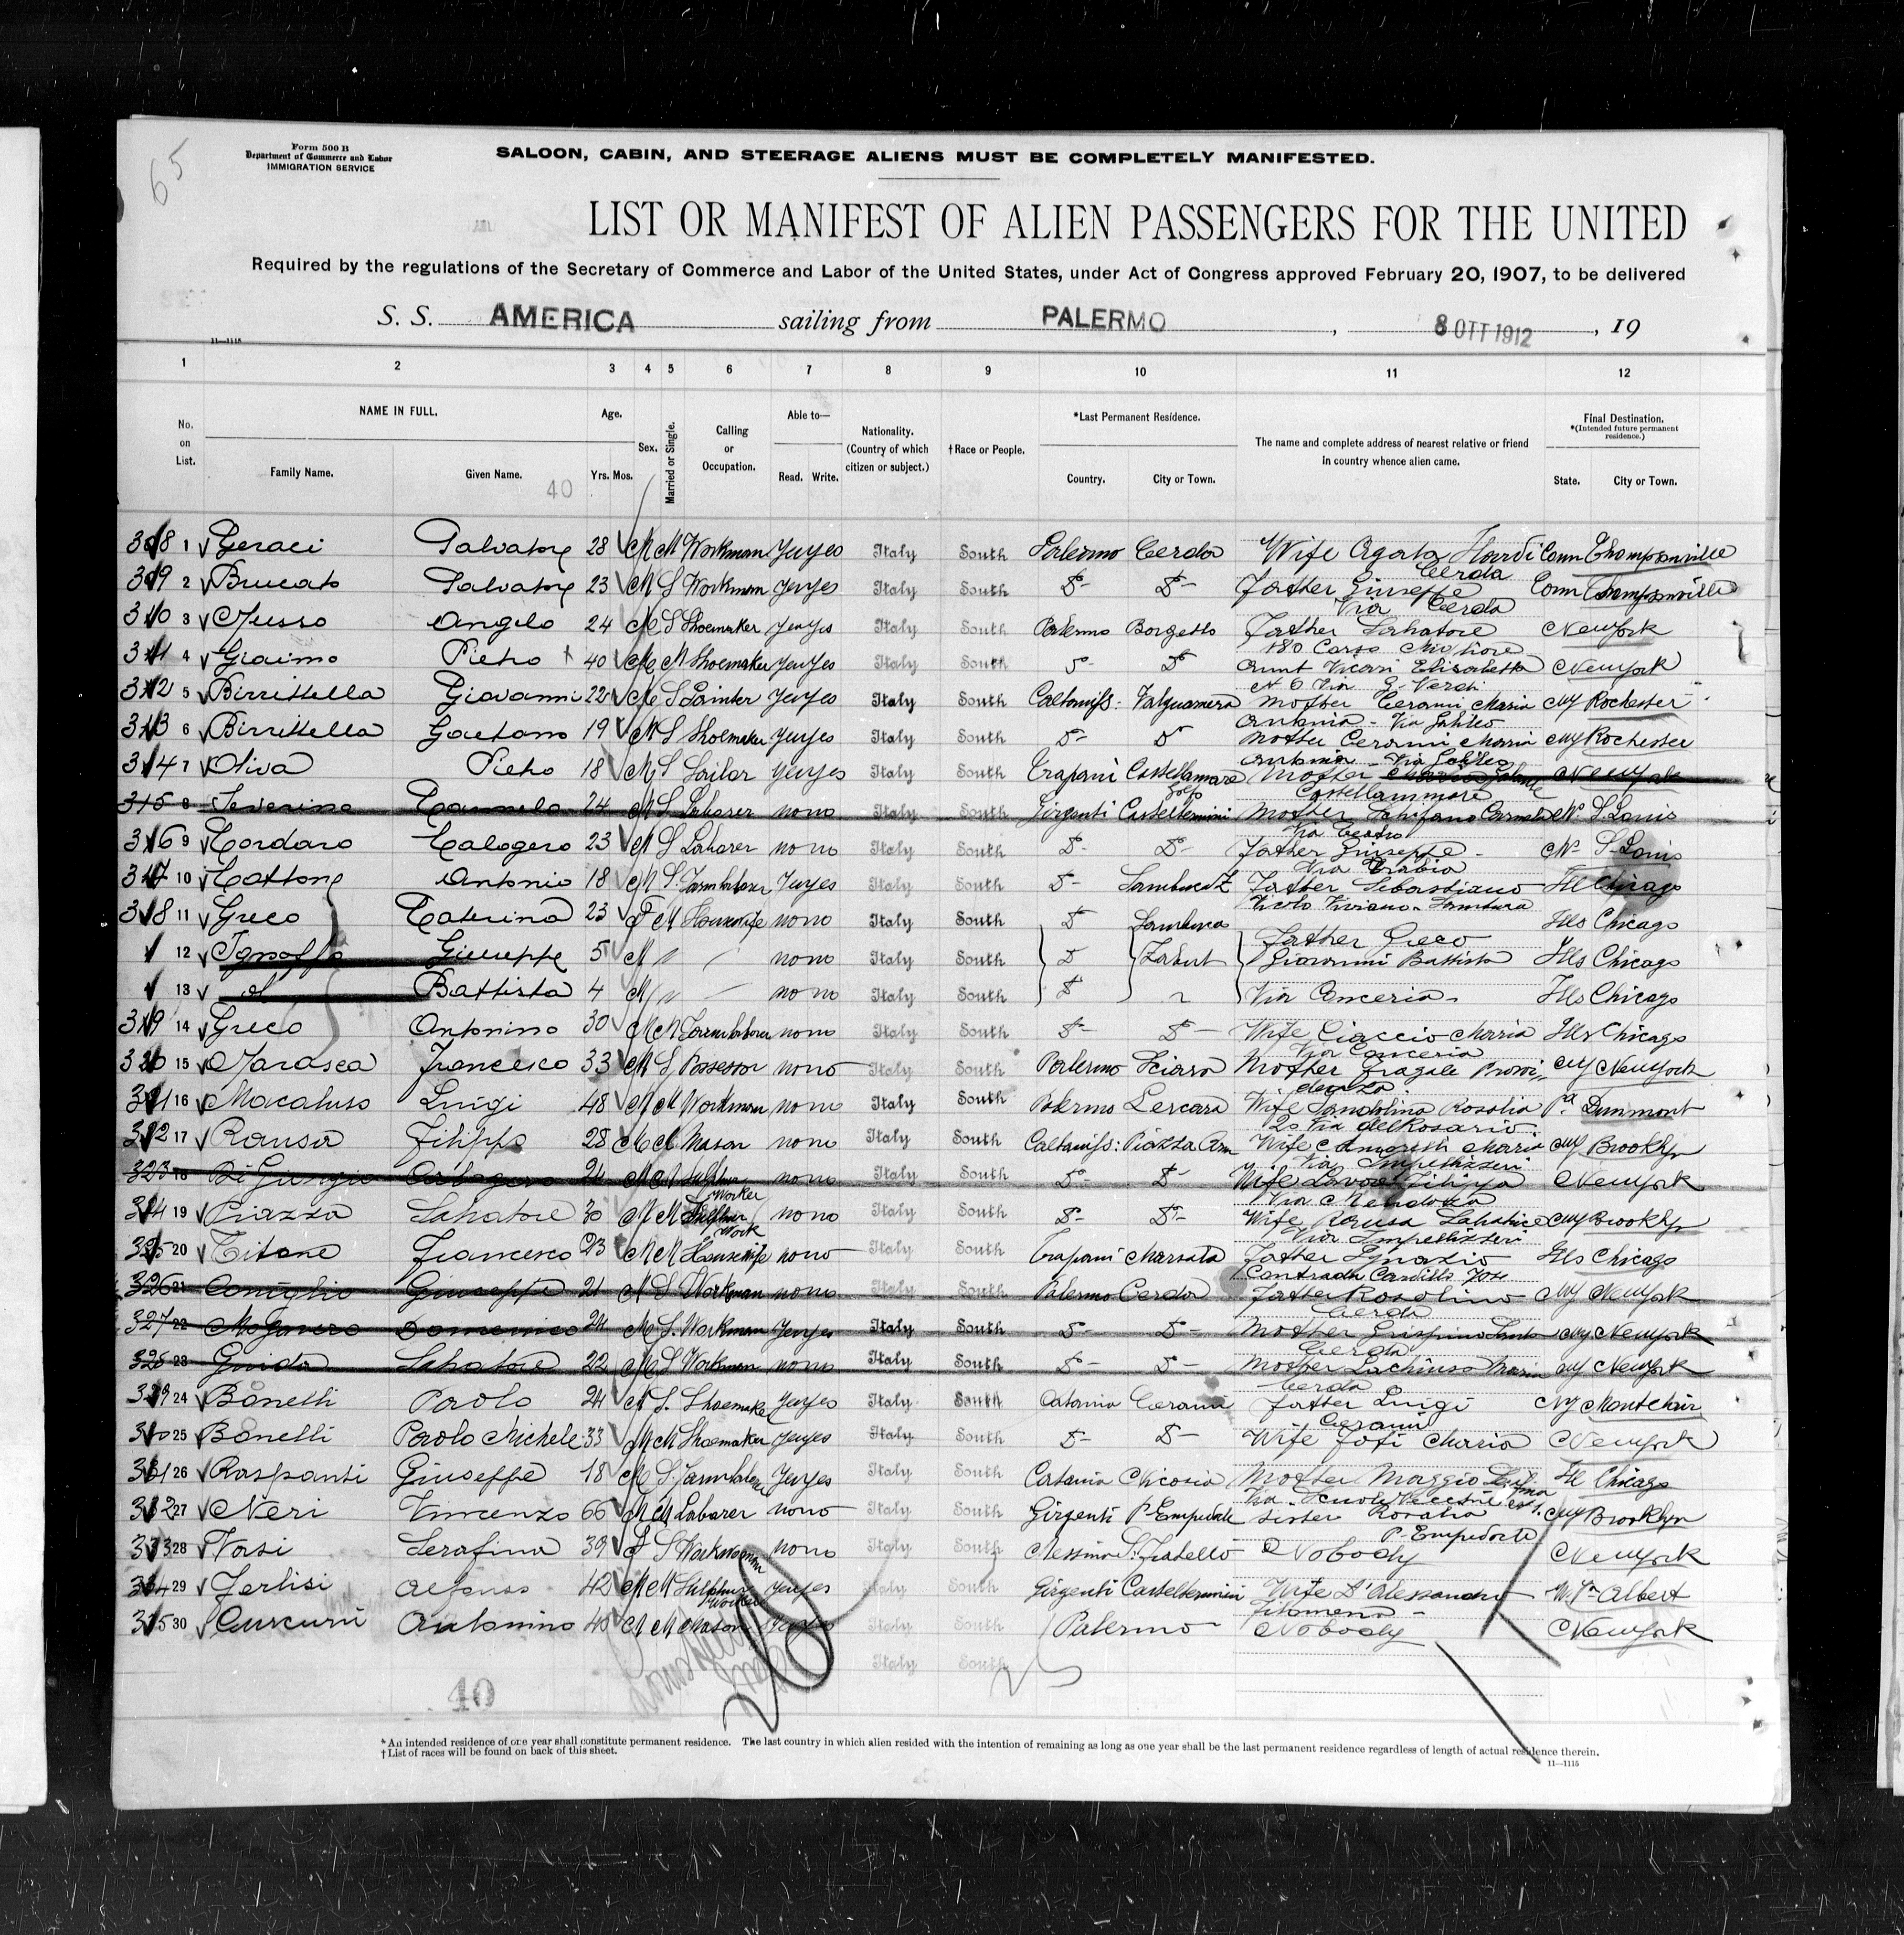 65
Form 500 B
Department of Commerce and Labor
IMMIGRATION SERVICE
SALOON, CABIN, AND STEERAGE ALIENS MUST BE COMPLETELY MANIFESTED.
LIST OR MANIFEST OF ALIEN PASSENGERS FOR THE UNITED
Required by the regulations of the Secretary of Commerce and Labor of the United States, under Act of Congress approved February 20, 1907, to be delivered
S. S. AMERICA sailing from PALERMO , 8 OTT 1912 , 19
11—1115
1 2 3 4 5 6 7 8 9 10 11 12
No. on List.
NAME IN FULL.
Family Name. Given Name.
40
Age.
Yrs. Mos.
Sex.
Married or Single.
Calling or Occupation.
Able to—
Read. Write.
Nationality. (Country of which citizen or subject.)
†Race or People.
*Last Permanent Residence.
Country. City or Town.
The name and complete address of nearest relative or friend in country whence alien came.
Final Destination.
*(Intended future permanent residence.)
State. City or Town.
1 Geraci Salvatore 28 M M Workman yes yes Italy South Palermo Cerda Wife Agata Conn Thompsonville
Cerda
2 Brucato Salvatore 23 M S Workman yes yes Italy South D- D- Father Giuseppe Conn Thompsonville
Via Cerda
3 Musso Angelo 24 M S Shoemaker yes yes Italy South Palermo Borgetto Father Salvatore New York
180 Corso
4 Giaimo Pietro 40 M M Shoemaker yes yes Italy South D- D- Aunt Vicari Elisabetta New York
Via G. Verdi
5 Birrittella Giovanni 22 M S Painter yes yes Italy South Caltaniss: Valguarnera Mother Cerami Maria NY Rochester
Antonia - Via Galileo
6 Birrittella Gaetano 19 M S Shoemaker yes yes Italy South D- D- Mother Cerami Maria NY Rochester
Antonia - Via Galileo
7 Oliva Pietro 18 M S Sailor yes yes Italy South Trapani Castellamare Mother New York
golfo Castellammare
315 8 Severino Carmelo 24 M S Laborer no no Italy South Girgenti Casteltermini Mother Carmela Mo S. Louis
Via Teatro
9 Cordaro Calogero 23 M S Laborer no no Italy South D- D- Father Giuseppe - Mo S. Louis
Via Trabia
10 Cottone Antonio 18 M S. Farmlaborer yes yes Italy South D- Sambuca Z Father Sebastiano Ill Chicago
Vicolo Viviano - Sambuca
11 Greco Caterina 23 F M Housewife no no Italy South D Sambuca Ills Chicago
Father Greco
12 Ignoffo Giuseppe 5 M no no Italy South D Zabut Giovanni Battista Ills Chicago
13 Battista 4 M no no Italy South D Via Conceria - Ills Chicago
14 Greco Antonino 30 M M Farmlaborer no no Italy South D- D- Wife Ciaccio Maria Ills Chicago
Via Conceria
15 Marasca Francesco 33 M S Possessor no no Italy South Palermo Sciara Mother Fragale NY New York
16 Macaluso Luigi 48 M M Workman no no Italy South Palermo Lercara Wife Rosalia Pa Dunmont
20 Via del Rosario
17 Rausa Filippo 28 M M Mason no no Italy South Caltaniss: Piazza Arm Wife Maria NY Brooklyn
Via Impellizzeri
323 18 Di Giorgio Calogero 24 M M Sulphur Worker no no Italy South D- D- Wife Filippa New York
Via
19 Piazza Salvatore 30 M M Sulphur Work no no Italy South D- D- Wife Rausa NY Brooklyn
Via Impellizzeri
20 Titone Francesco 23 M M Housewife no no Italy South Trapani Marsala Father Ignazio Ills Chicago
Contrada Cardillo
326 21 Coniglio Giuseppe 21 M S Workman no no Italy South Palermo Cerda Father Rosolino NY New York
Cerda
327 22 Domenico 24 M S. Workman yes yes Italy South D- D- Mother NY New York
Cerda
328 23 Guida Salvatore 22 M S Workman no no Italy South D- D- Mother Maria NY New York
Cerda
24 Bonelli Paolo 24 M S. Shoemaker yes yes Italy South Catania Cerami Father Luigi NY Montclair
Cerami
25 Bonelli Paolo Michele 33 M M Shoemaker yes yes Italy South D- D- Wife Maria New York
26 Raspanti Giuseppe 18 M S. Farmlaborer yes yes Italy South Catania Nicosia Mother Maggio Ill Chicago
27 Neri Vincenzo 66 M M Laborer no no Italy South Girgenti P. Empedole sister Rosalia NY Brooklyn
P. Empedocle
28 Vasi Serafina 39 F S Workwoman no no Italy South Messina S. Fratello Nobody New York
29 Ferlisi Alfonso 42 M M Sulphur Worker yes yes Italy South Girgenti Casteltermini Wife D'Alessandro W. Va Albert
Filomena -
30 Curcuru Antonino 40 M M Mason Italy South Palermo Nobody New York
Italy South
40
*An intended residence of one year shall constitute permanent residence. The last country in which alien resided with the intention of remaining as long as one year shall be the last permanent residence regardless of length of actual residence therein.
†List of races will be found on back of this sheet.
11—1115